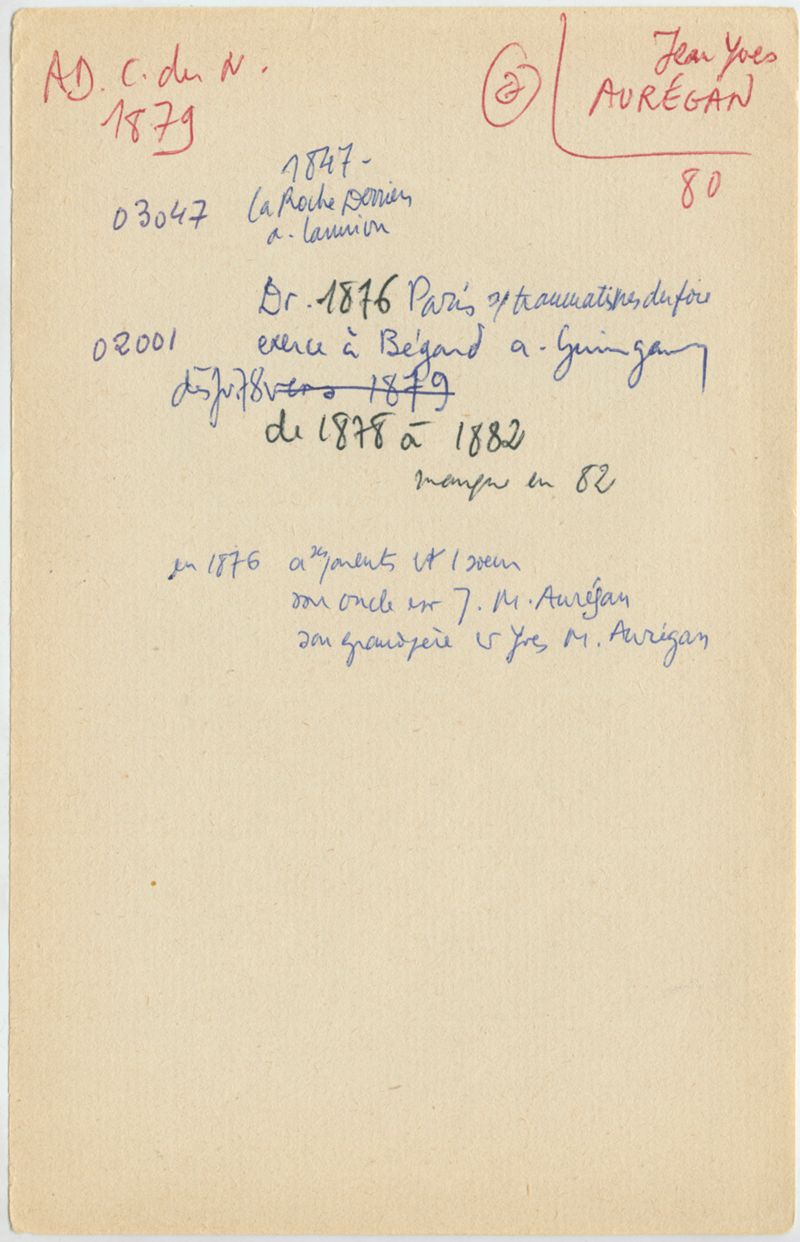 AD. C. du N.
1879
②
Jean Yves
AURÉGAN
80
1847-
03047 La Roche Derrien
a. Lannion
Dr. 1876 Paris traumatismes du foie
02001 exerce à Bégard a. Guingamp
dès jv. 78 vers 1879
de 1878 à 1882
manque en 82
en 1876 a ses parents et 1 soeur
son oncle est J. M. Aurégan
son grandpère Yves M. Aurégan